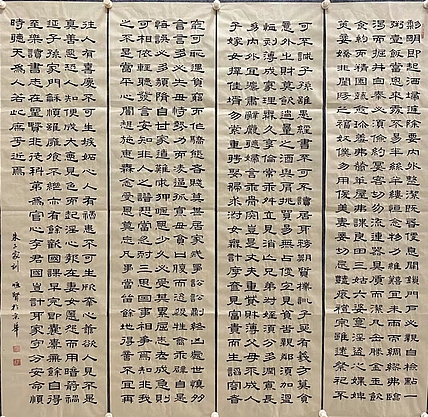 黎明即起洒埽庭除要內外整潔既昏便息關鎖門戶必親自檢點一
粥壹飯當思來處不易半絲半縷恒念物力維艱宜未雨而綢繆毋臨
渴而掘井自奉必須儉約宴客切勿流連器具質而潔瓦缶勝金玉飲
食約而精園蔬愈珍饈勿營華屋勿謀良田三姑六婆實淫盜之媒婢
美妾嬌非閨房之福奴僕勿用俊美妻妾切忌豔妝祖宗雖遠祭祀不
可不誠子孫雖愚經書不可不讀居身務期質樸教子要有義方莫貪
意外之財莫飲過量之酒與肩挑貿易毋占便宜見貧苦親鄰須加溫
恤刻薄成家理無久享倫常乖舛立見消亡兄弟叔姪須分多潤寡長
幼內外宜灋肅辭嚴聽婦言乖骨肉豈是丈夫重資財薄父母不成人
子嫁女擇佳婿毋索重聘娶媳求淑女勿計厚奩見富貴而生諂容者
最可恥遇貧窮而作驕態者賤莫甚居家戒爭訟訟則終凶處世戒多
言言多必失毋恃勢力而凌逼孤寡毋貪口腹而恣殺牲禽乖僻自是
悔誤必多頹惰自甘家道難成狎暱惡少久必受其累屈志老成急則
可相依輕聽發言安知非人之譖愬當忍耐三思因事相爭焉知非我
之不是當平心闇想施惠無念受恩莫忘凡事當留餘地得意不宜再
往人有喜慶不可生妒嫉心人有禍患不可生喜幸心善欲人見不是
真善惡恐人知便是大惡見色而起淫心報在妻女匿怨而用暗箭禍
延子孫家門和順雖饔飧不繼亦有餘歡國課早完即囊橐無餘自得
至樂讀書志在聖賢非徒科第為官心存君國豈計身家守分安命順
時聽天為人若此庶乎近焉
朱子家訓
於京華